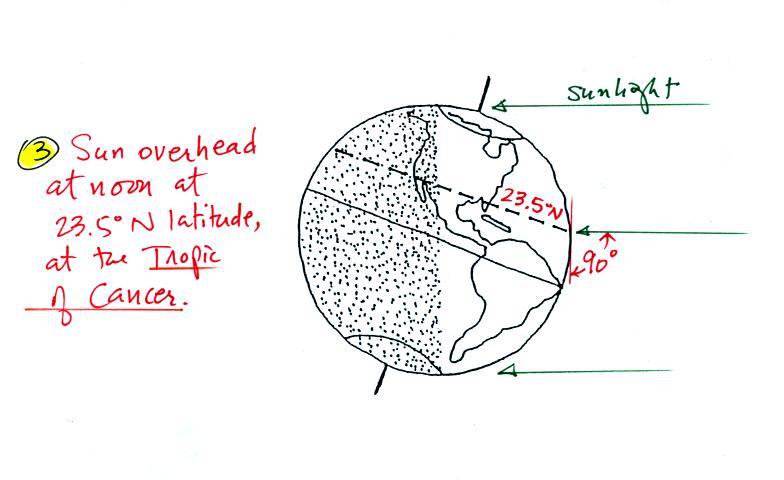 3 Sun overhead
at noon at
23.5° N latitude,
at the Tropic
of Cancer.
sunlight
23.5°N
90°